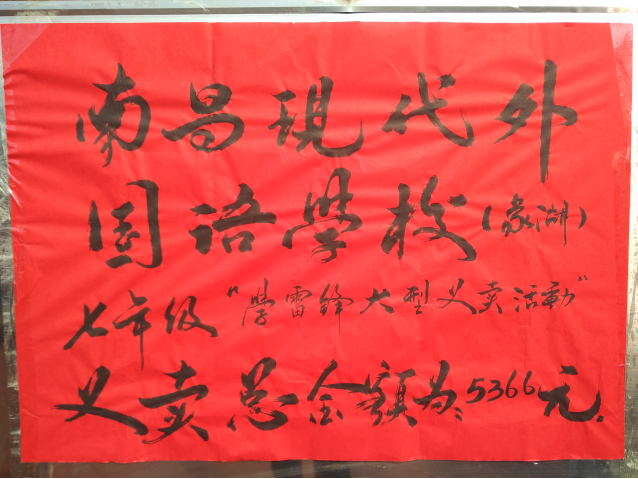 南昌現代外
国语學校(象湖)
七年级“學雷锋大型义卖活動”
义卖总金额为:5366元.